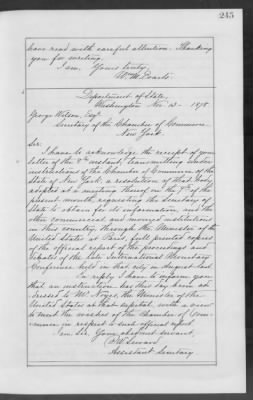 245
have read with careful attention. Thanking
you for writing,
I am, Yours truly,
Wm. M. Evarts.
Department of State,
Washington Nov. 13 - 1878.
George Wilson, Esqr.
Secretary of the Chamber of Commerce
New York.
Sir:
I have to acknowledge the receipt of your
letter of the 8th instant, transmitting under
instructions of the Chamber of Commerce of the
State of New York, a resolution of that body
adopted at a meeting thereof on the 7th of the
present month, requesting the Secretary of
State to obtain for its information, and the
other commercial and moneyed institutions
in this country, through the Minister of the
United States at Paris, full printed copies
of the official report of the proceedings and
debates of the late International Monetary
Conference held in that city in August last.
In reply I have to inform you
that an instruction has this day been ad-
dressed to Mr. Noyes, the Minister of the
United States at that capital, with a view
to meet the wishes of the Chamber of Com-
merce in respect to such official report.
I am, Sir, Your obedient servant,
F. W. Seward
Assistant Secretary